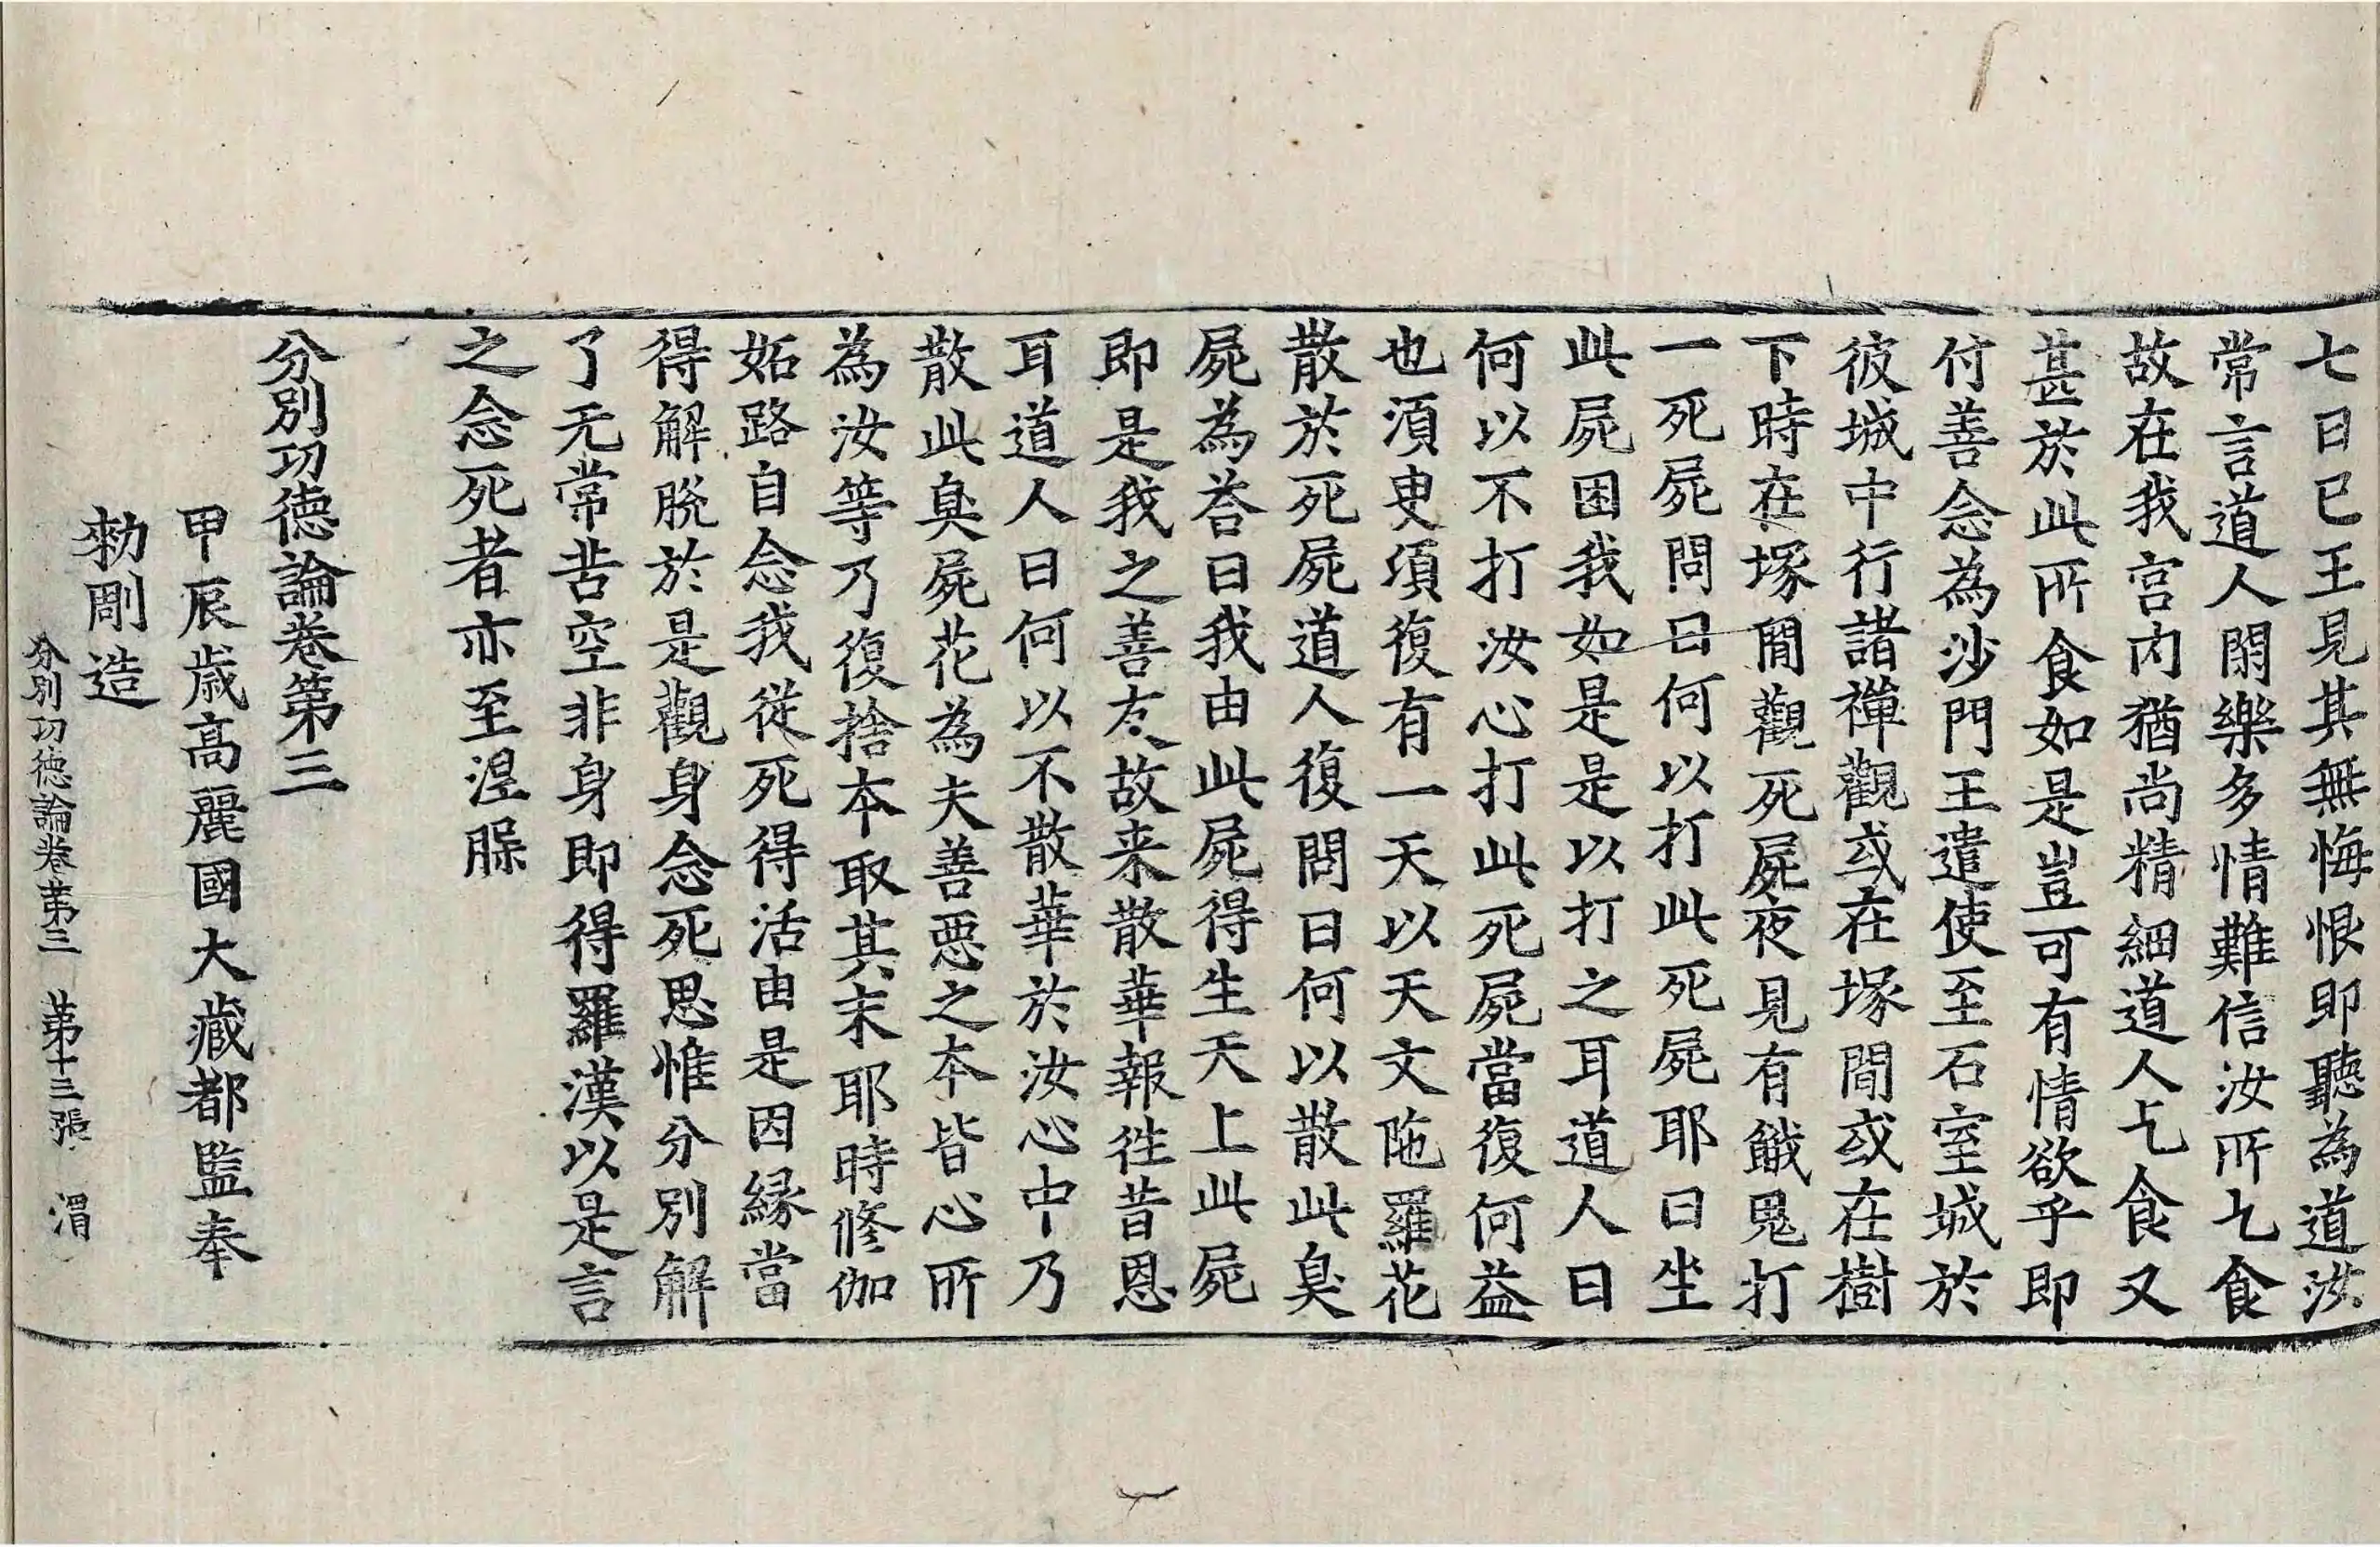 七日已王見其無悔恨即聽為道汝
常言道人閑樂多情難信汝所乞食
故在我宮内猶尚精細道人乞食又
甚於此所食如是豈可有情欲乎即
付善念為沙門王遣使至石室城於
彼城中行諸禪觀或在塚間或在樹
下時在塚間觀死屍夜見有餓鬼打
一死屍問曰何以打此死屍耶曰坐
此屍困我如是是以打之耳道人曰
何以不打汝心打此死屍當復何益
也須臾須復有一天以天文陁羅花
散於死屍道人復問曰何以散此臭
屍為荅曰我由此屍得生天上此屍
即是我之善友故来散華報徃昔恩
耳道人曰何以不散華於汝心中乃
散此臭屍花為夫善惡之本皆心所
為汝等乃復捨本取其末耶時修伽
妬路自念我從死得活由是因緣當
得解脫於是觀身念死思惟分別解
了无常苦空非身即得羅漢以是言
之念死者亦至涅槃
分別功德論卷第三
甲辰歲高麗國大藏都監奉
勅彫造
分別功徳論卷第三　第十三張　渭